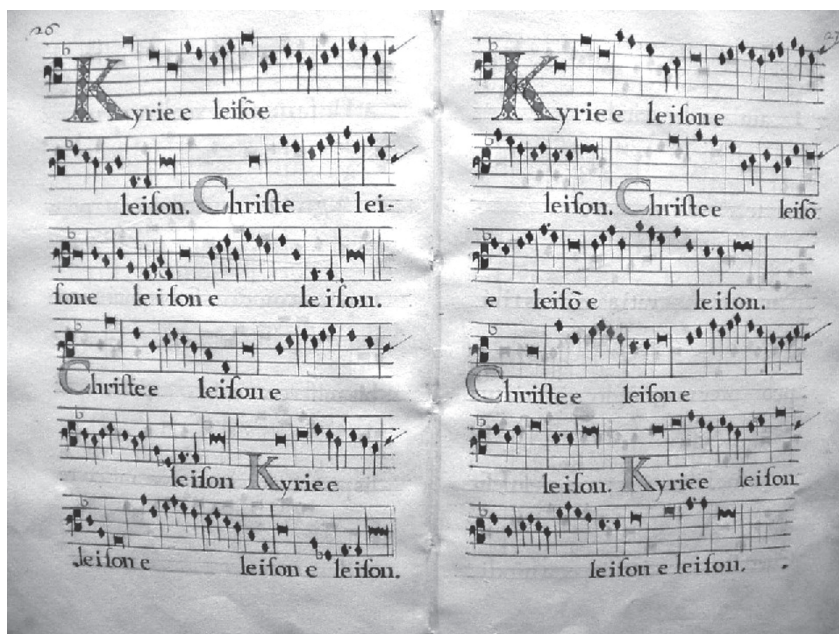 26
Kyrie e leisõe
leison. Christe lei-
sone le i son e le ison.
Christe e leison e
leison Kyrie e
leison e leison e leison.
27
Kyrie e leison e
leison. Christe e leisõ
e leisõ e leison.
Christe e leison e
leison. Kyrie e leison
leison e leison.